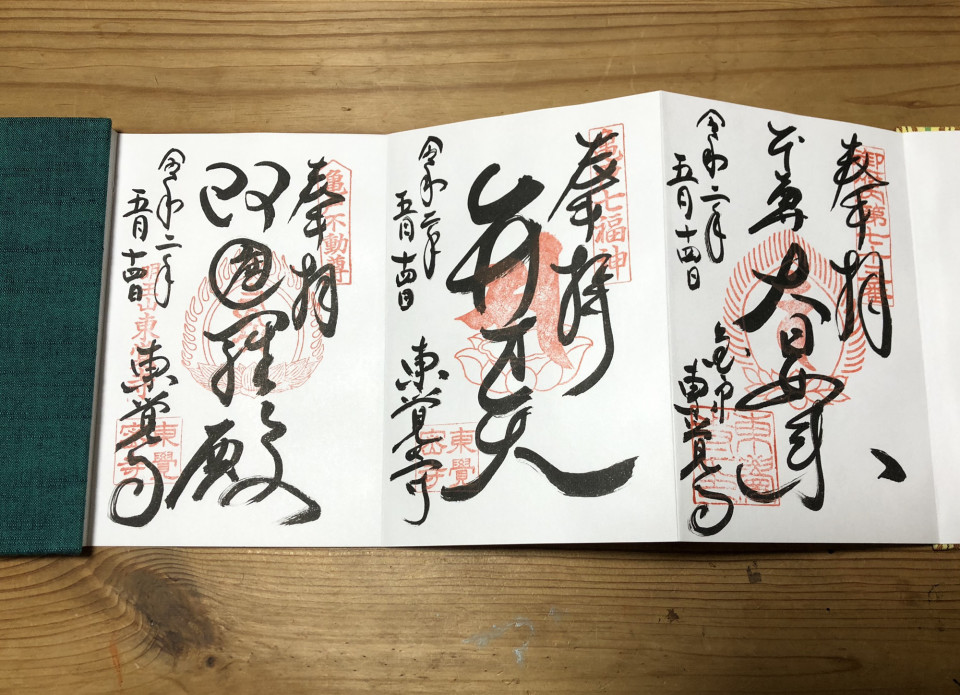 御府内第七十三番
奉拝
本尊
大日如来
令和二年
五月十四日
東覚寺
亀戸七福神
奉拝
弁才天
令和二年
五月十四日
東覚寺
東覺
密寺
亀戸不動尊
奉拝
羅殿
令和二年
五月十四日
東覚寺
東覺
密寺